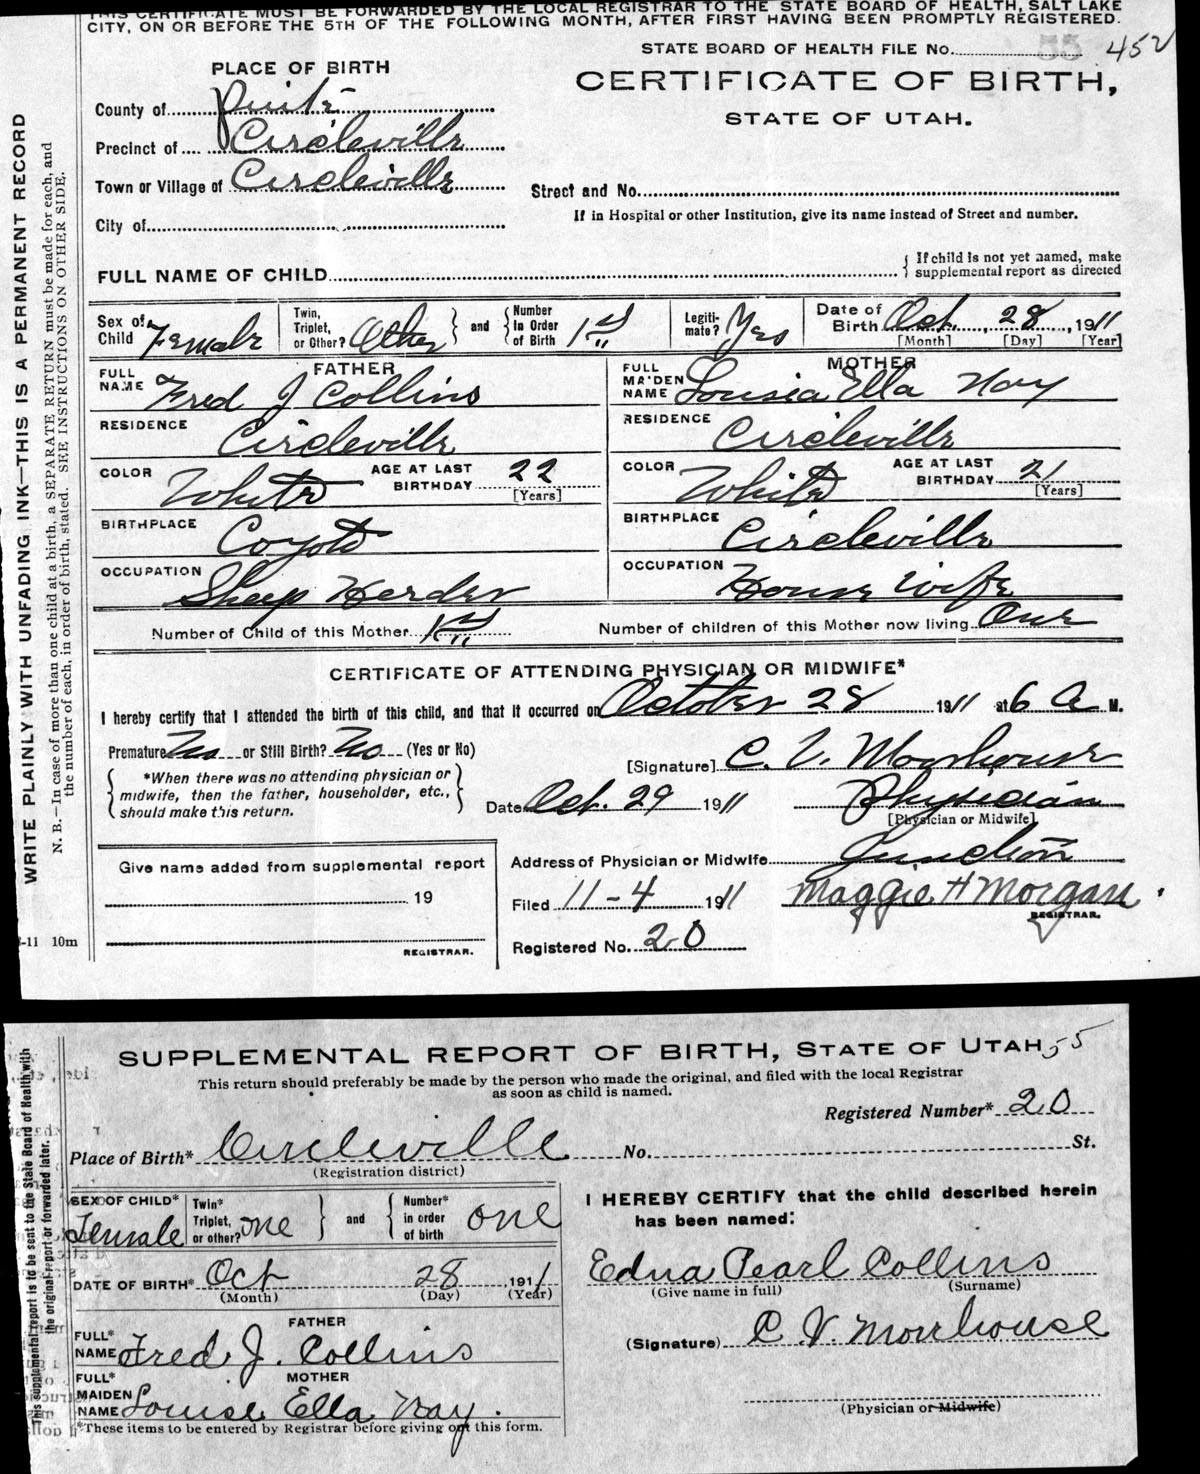 THIS CERTIFICATE MUST BE FORWARDED BY THE LOCAL REGISTRAR TO THE STATE BOARD OF HEALTH, SALT LAKE
CITY, ON OR BEFORE THE 5TH OF THE FOLLOWING MONTH, AFTER FIRST HAVING BEEN PROMPTLY REGISTERED.
STATE BOARD OF HEALTH FILE No. 55 452
PLACE OF BIRTH
CERTIFICATE OF BIRTH,
STATE OF UTAH.
County of Piute
Precinct of Circleville
Town or Village of Circleville
Street and No.
If in Hospital or other Institution, give its name instead of Street and number.
City of
FULL NAME OF CHILD
If child is not yet named, make
supplemental report as directed
Sex of Child Female
Twin, Triplet, or Other? Other
and
Number in Order of Birth 1st
Legiti-mate? Yes
Date of Birth Oct. 28, 1911
[Month] [Day] [Year]
FATHER
FULL NAME Fred J Collins
MOTHER
FULL MAIDEN NAME Lousia Ella Nay
RESIDENCE Circleville
RESIDENCE Circleville
COLOR White AGE AT LAST BIRTHDAY 22 [Years]
COLOR White AGE AT LAST BIRTHDAY 21 [Years]
BIRTHPLACE Coyoto
BIRTHPLACE Circleville
OCCUPATION Sheep Herder
OCCUPATION House Wife
Number of Child of this Mother 1st
Number of children of this Mother now living One
CERTIFICATE OF ATTENDING PHYSICIAN OR MIDWIFE*
I hereby certify that I attended the birth of this child, and that it occurred on October 28 1911 at 6 A M.
Premature No or Still Birth? No (Yes or No)
[Signature] C. V. Morrhouse
*When there was no attending physician or
midwife, then the father, householder, etc.,
should make this return.
Date Oct. 29 1911
Physician
[Physician or Midwife]
Give name added from supplemental report
19
REGISTRAR.
Address of Physician or Midwife Junction
Filed 11-4 1911 Maggie H Morgan.
REGISTRAR.
Registered No. 20
-11 10m
WRITE PLAINLY WITH UNFADING INK—THIS IS A PERMANENT RECORD
N. B.—In case of more than one child at a birth, a SEPARATE RETURN must be made for each, and
the number of each, in order of birth, stated. SEE INSTRUCTIONS ON OTHER SIDE.
SUPPLEMENTAL REPORT OF BIRTH, STATE OF UTAH 55
This return should preferably be made by the person who made the original, and filed with the local Registrar
as soon as child is named.
Registered Number* 20
Place of Birth* Circleville No. St.
(Registration district)
SEX OF CHILD* Female
Twin* Triplet, or other? one
and
Number* in order of birth one
DATE OF BIRTH* Oct 28 1911
(Month) (Day) (Year)
FATHER
FULL* NAME Fred J. Collins
MOTHER
FULL* MAIDEN NAME Louise Ella Nay.
*These items to be entered by Registrar before giving out this form.
I HEREBY CERTIFY that the child described herein
has been named:
Edna Pearl Collins
(Give name in full) (Surname)
(Signature) C V. Morrhouse
(Physician or Midwife)
This supplemental report is to be sent to the State Board of Health with
the original report or forwarded later.